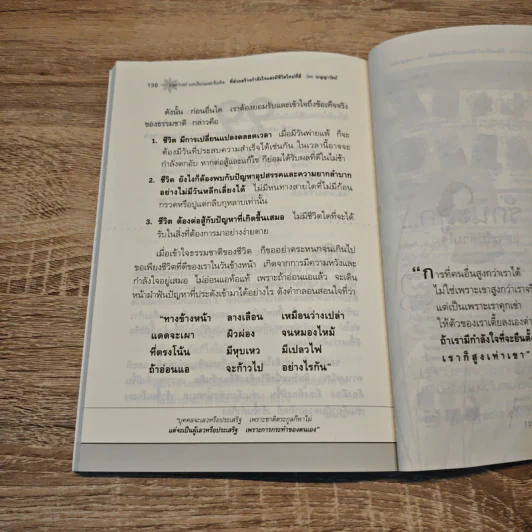 138
ที่ช่วยสร้างกำลังใจและมีชีวิตใหม่ที่ดี
ดังนั้น ก่อนอื่นใด เราต้องยอมรับและเข้าใจถึงข้อเท็จจริง
ของธรรมชาติ กล่าวคือ
1. ชีวิต มีการเปลี่ยนแปลงตลอดเวลา เมื่อมีวันพ่ายแพ้ ก็จะ
ต้องมีวันที่ประสบความสำเร็จได้เช่นกัน ในเวลานี้อาจจะ
กำลังตกอับ หากต่อสู้และแก้ไข ก็ย่อมได้รับผลที่ดีในไม่ช้า
2. ชีวิต ยังไงก็ต้องพบกับปัญหาอุปสรรคและความยากลำบาก
อย่างไม่มีวันหลีกเลี่ยงได้ ไม่มีหนทางสายใดที่ไม่มีก้อน
กรวดหรือปูแต่กลีบกุหลาบเท่านั้น
3. ชีวิต ต้องต่อสู้กับปัญหาที่เกิดขึ้นเสมอ ไม่มีชีวิตใดที่จะได้
รับในสิ่งที่ต้องการมาอย่างง่ายดาย
เมื่อเข้าใจธรรมชาติของชีวิต ก็ขออย่าตระหนกจนเกินไป
ขอเพียงชีวิตที่ดีของเราในวันข้างหน้า เกิดจากการมีความหวังและ
กำลังใจอยู่เสมอ ไม่อ่อนแอท้อแท้ เพราะถ้าอ่อนแอแล้ว จะเดิน
หน้าฝ่าฟันปัญหาที่ประดังเข้ามาได้อย่างไร ดังคำกลอนสอนใจที่ว่า
"ทางข้างหน้า ลางเลือน เหมือนว่างเปล่า
แดดจะเผา ผิวผ่อง จนหมองไหม้
ที่ตรงโน้น มีหุบเหว มีเปลวไฟ
ถ้าอ่อนแอ จะก้าวไป อย่างไรกัน"
"บุคคลจะเลวหรือประเสริฐ เพราะชาติตระกูลก็หาไม่
แต่จะเป็นผู้เลวหรือประเสริฐ เพราะการกระทำของตนเอง"
"การที่คนอื่นสูงกว่าเราได้
ไม่ใช่เพราะเขาสูงกว่าเรา
แต่เป็นเพราะเราคุกเข่า
ให้ตัวของเราเตี้ยลงเอง
ถ้าเรามีกำลังใจที่จะยืน
เราก็สูงเท่าเขา"